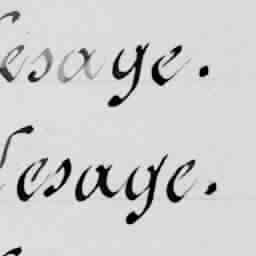 esage.
lesage.